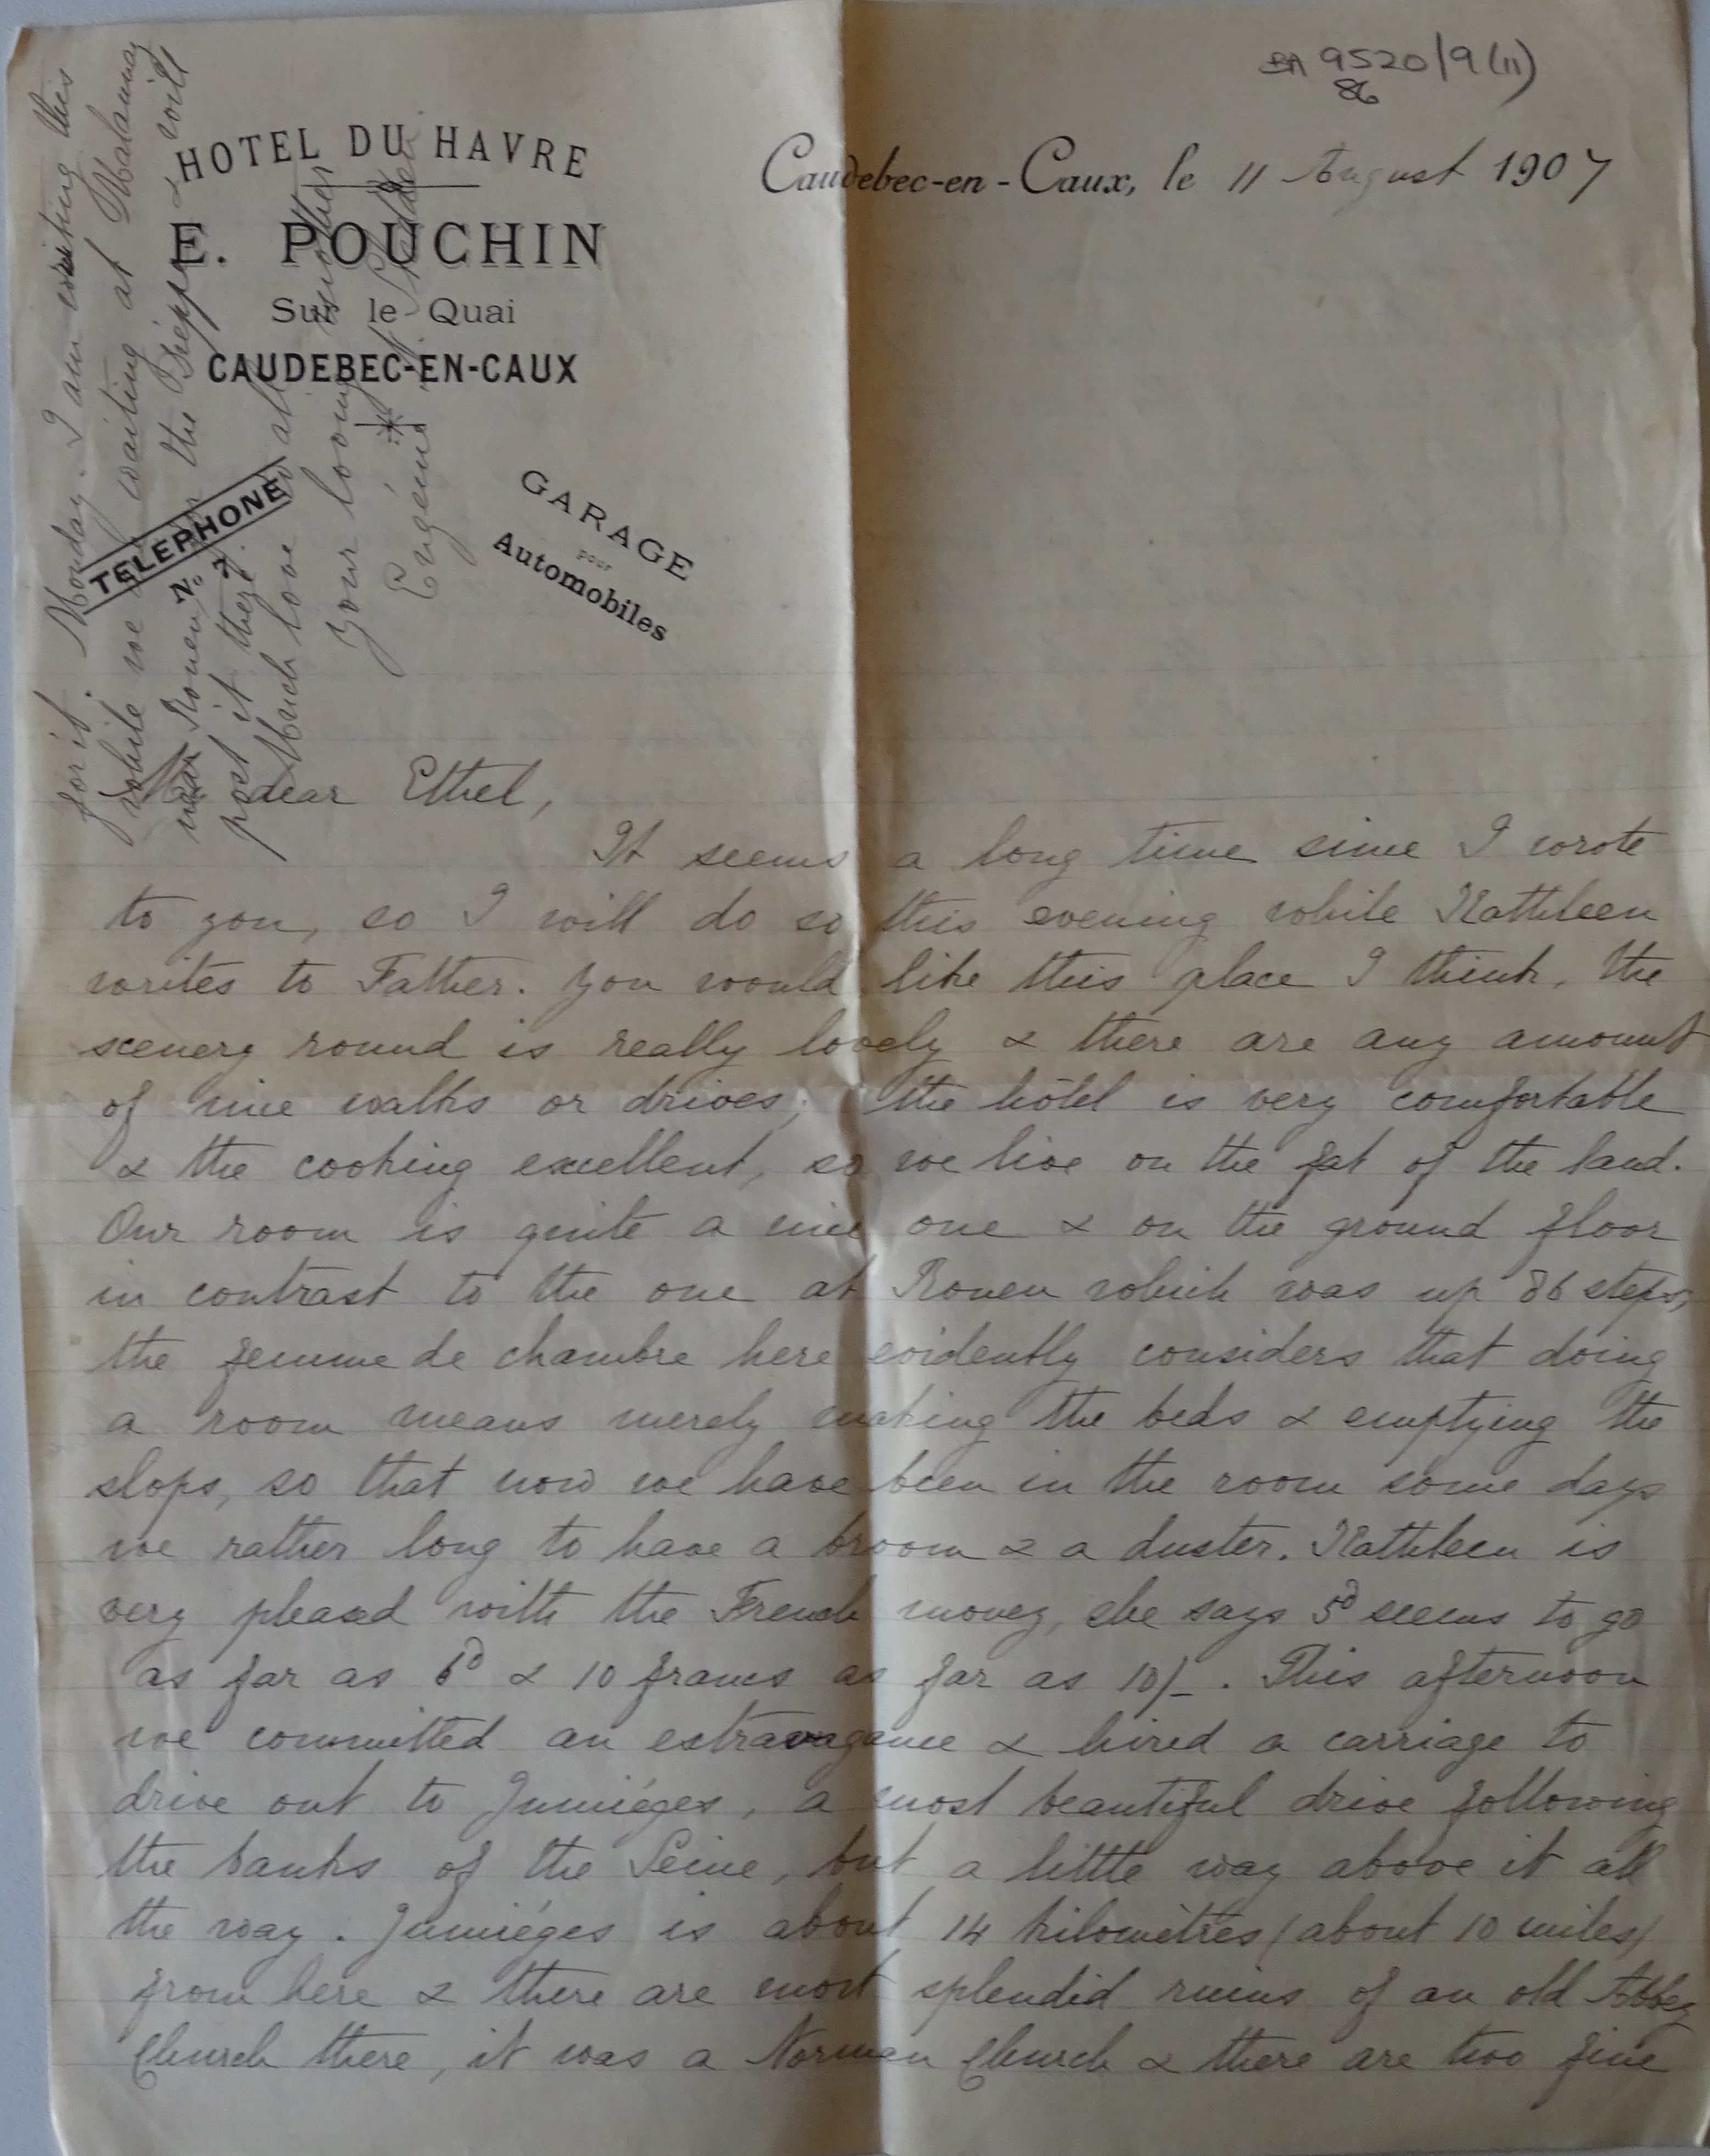 BA 9520/9(11)
86
HOTEL DU HAVRE
E. POUCHIN
Sur le Quai
CAUDEBEC-EN-CAUX
TELEPHONE
No. 7
GARAGE
pour
Automobiles
Caudebec-en-Caux, le 11 August 1907
My dear Ethel,
It seems a long time since I wrote
to you, so I will do so this evening while Kathleen
writes to Father. You would like this place I think, the
scenery round is really lovely & there are any amount
of nice walks or drives; the hôtel is very comfortable
& the cooking excellent, so we live on the fat of the land.
Our room is quite a nice one & on the ground floor
in contrast to the one at Rouen which was up 86 steps,
the femme de chambre here evidently considers that doing
a room means merely making the beds & emptying the
slops, so that now we have been in the room some days
we rather long to have a broom & a duster. Kathleen is
very pleased with the French money, she says 5d seems to go
as far as 6d & 10 francs as far as 10/-. This afternoon
we committed an extravagance & hired a carriage to
drive out to Jumiéges, a most beautiful drive following
the banks of the Seine, but a little way above it all
the way. Jumiéges is about 14 kilomètres (about 10 miles)
from here & there are most splendid ruins of an old Abbey
Church there, it was a Norman Church & there are two fine
for it. Monday. I am writing this
while we are waiting at Malaunay
near Rouen for the Dieppe & will
post it there.
Much love to all
Your loving sister
Eugénie